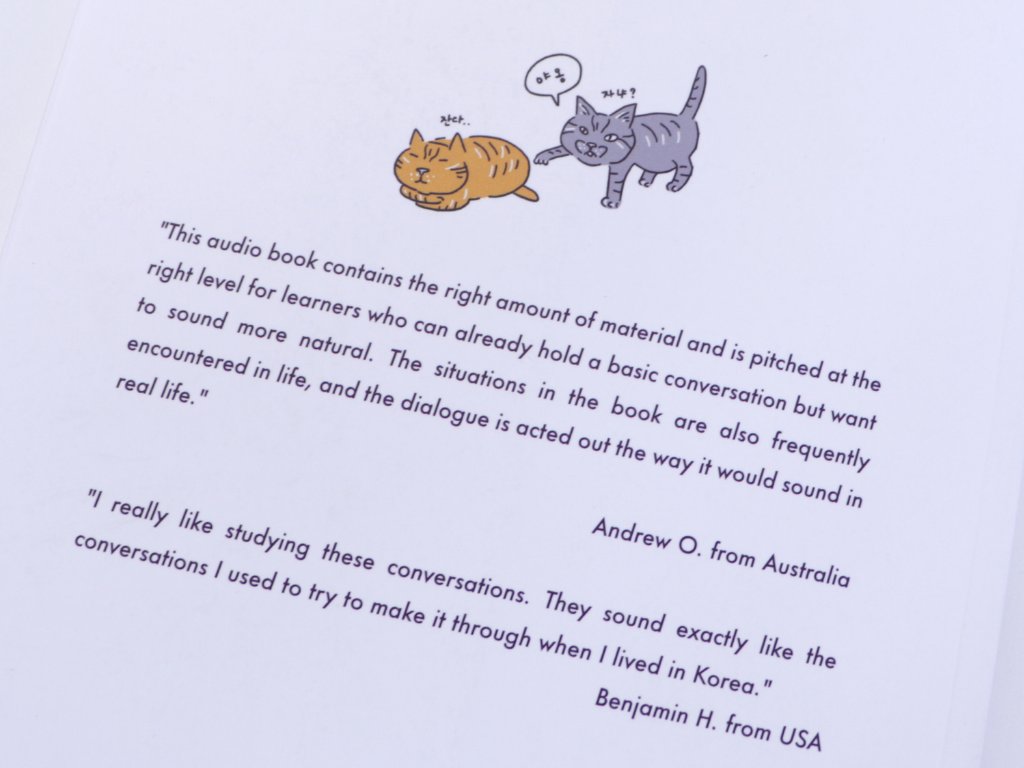 야옹
자냐?
잔다..
"This audio book contains the right amount of material and is pitched at the
right level for learners who can already hold a basic conversation but want
to sound more natural. The situations in the book are also frequently
encountered in life, and the dialogue is acted out the way it would sound in
real life."
Andrew O. from Australia
"I really like studying these conversations. They sound exactly like the
conversations I used to try to make it through when I lived in Korea."
Benjamin H. from USA